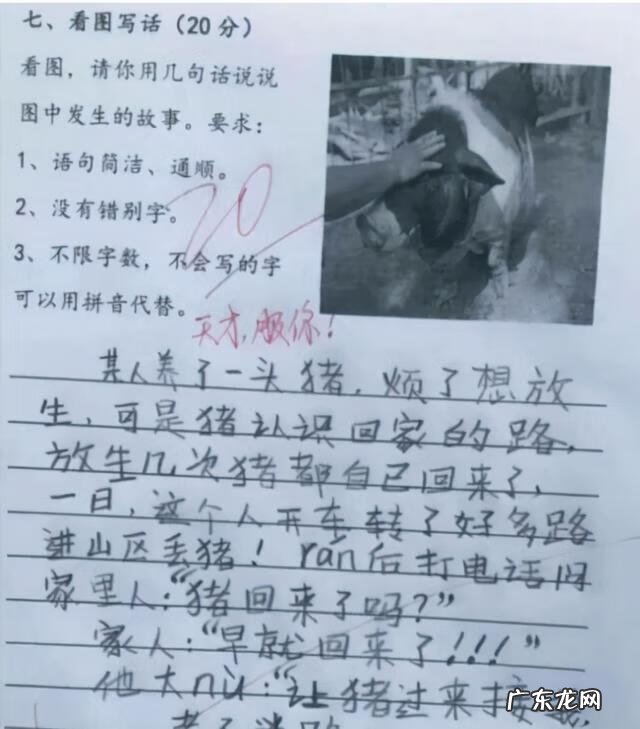 七、看图写话（20分）
看图，请你用几句话说说
图中发生的故事。要求：
1、语句简洁、通顺。
2、没有错别字。
3、不限字数，不会写的字
可以用拼音代替。
20
天才，服你！
某人养了一头猪，烦了想放
生，可是猪认识回家的路，
放生几次猪都自己回来了，
一日，这个人开车转了好多路
进山区丢猪！rán后打电话问
家里人：“猪回来了吗？”
家人：“早就回来了！！！”
他大nù：“让猪过来接我，
老子迷路
广东龙网